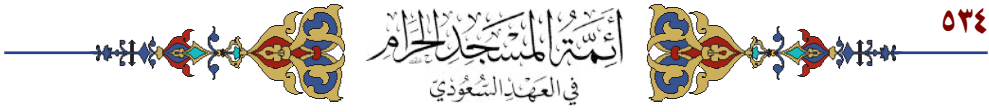 ٥٣٤
أئمة المسجد الحرام
في العهد السعودي